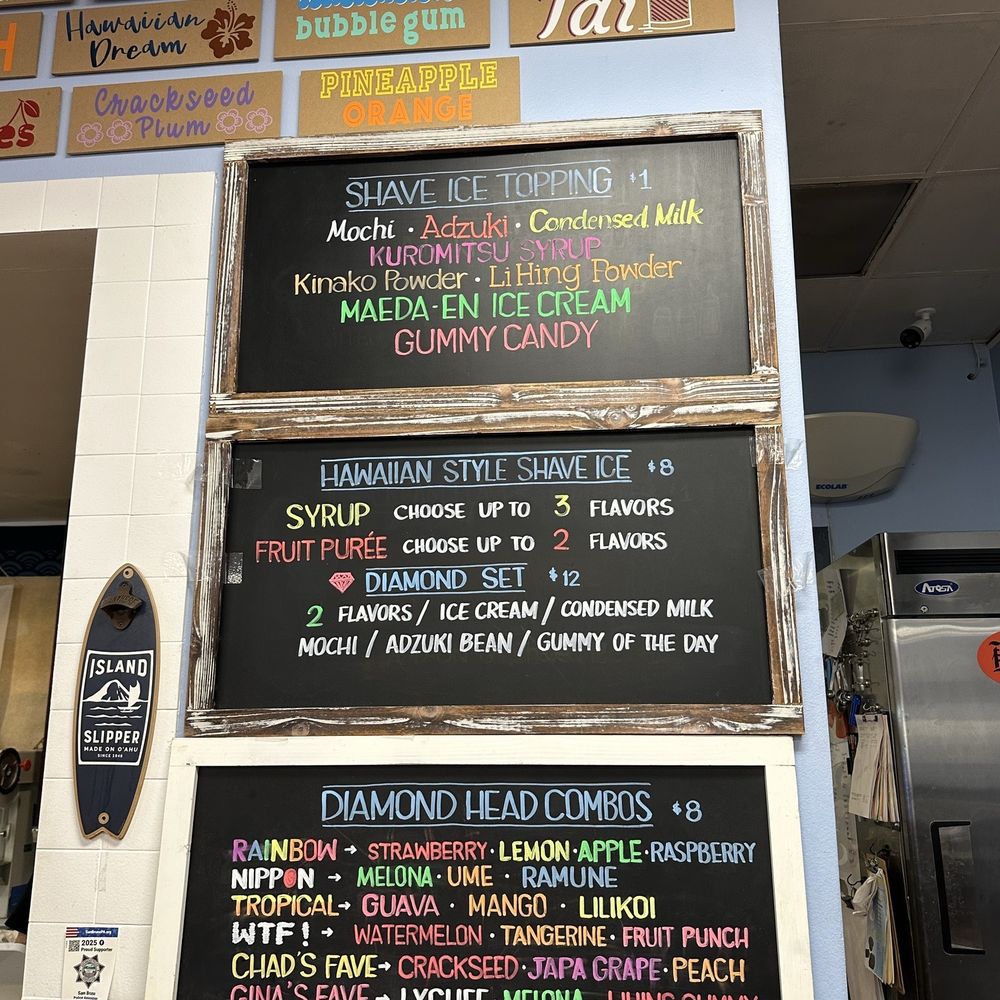 Hawaiian
Dream
bubble gum
Tai
H
es
Crackseed
Plum
PINEAPPLE
ORANGE
SHAVE ICE TOPPING $1
Mochi · Adzuki · Condensed Milk
KUROMITSU SYRUP
Kinako Powder · Li Hing Powder
MAEDA-EN ICE CREAM
GUMMY CANDY
HAWAIIAN STYLE SHAVE ICE $8
SYRUP CHOOSE UP TO 3 FLAVORS
FRUIT PURÉE CHOOSE UP TO 2 FLAVORS
DIAMOND SET $12
2 FLAVORS / ICE CREAM / CONDENSED MILK
MOCHI / ADZUKI BEAN / GUMMY OF THE DAY
DIAMOND HEAD COMBOS $8
RAINBOW → STRAWBERRY · LEMON · APPLE · RASPBERRY
NIPPON → MELONA · UME · RAMUNE
TROPICAL → GUAVA · MANGO · LILIKOI
WTF! → WATERMELON · TANGERINE · FRUIT PUNCH
CHAD'S FAVE → CRACKSEED · JAPA GRAPE · PEACH
GINA'S FAVE → LYCHEE · MELONA · LIHING GUMMY
ISLAND
SLIPPER
MADE ON O'AHU
SINCE 1946
2025
Proud Supporter
San Bruno
ECOLAB
Atosa